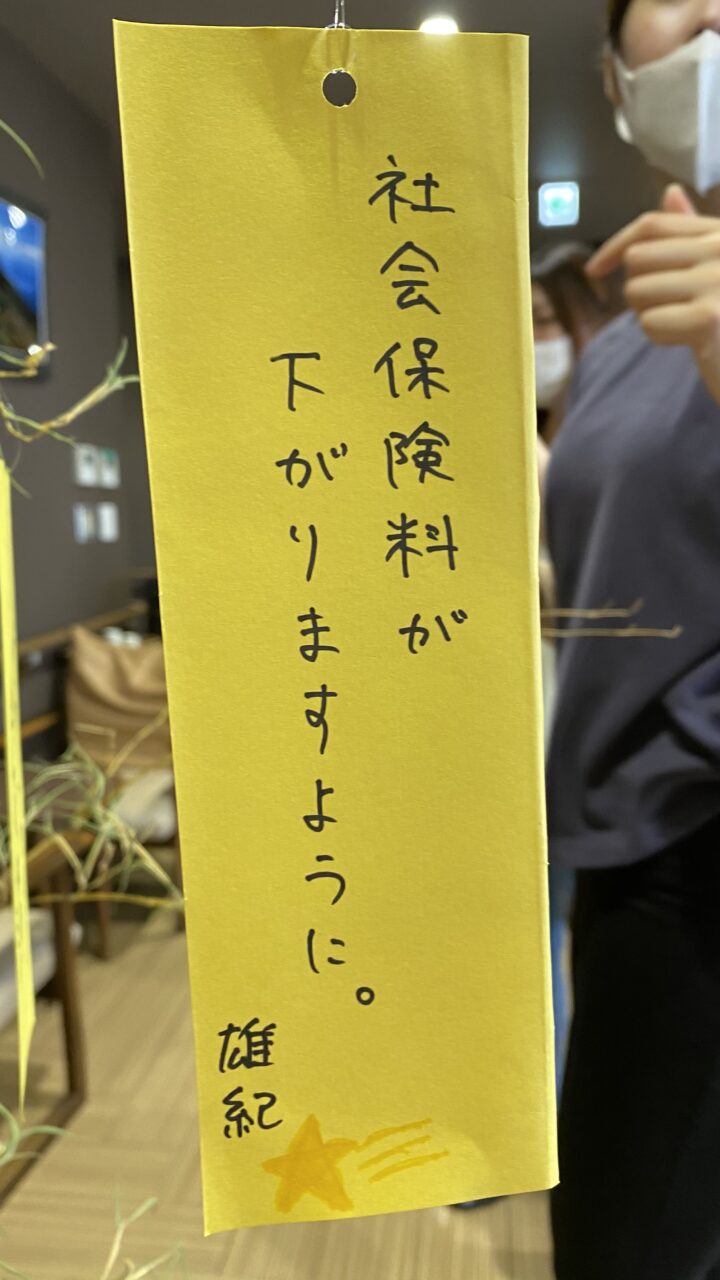 社会保険料が
下がりますように。
雄紀